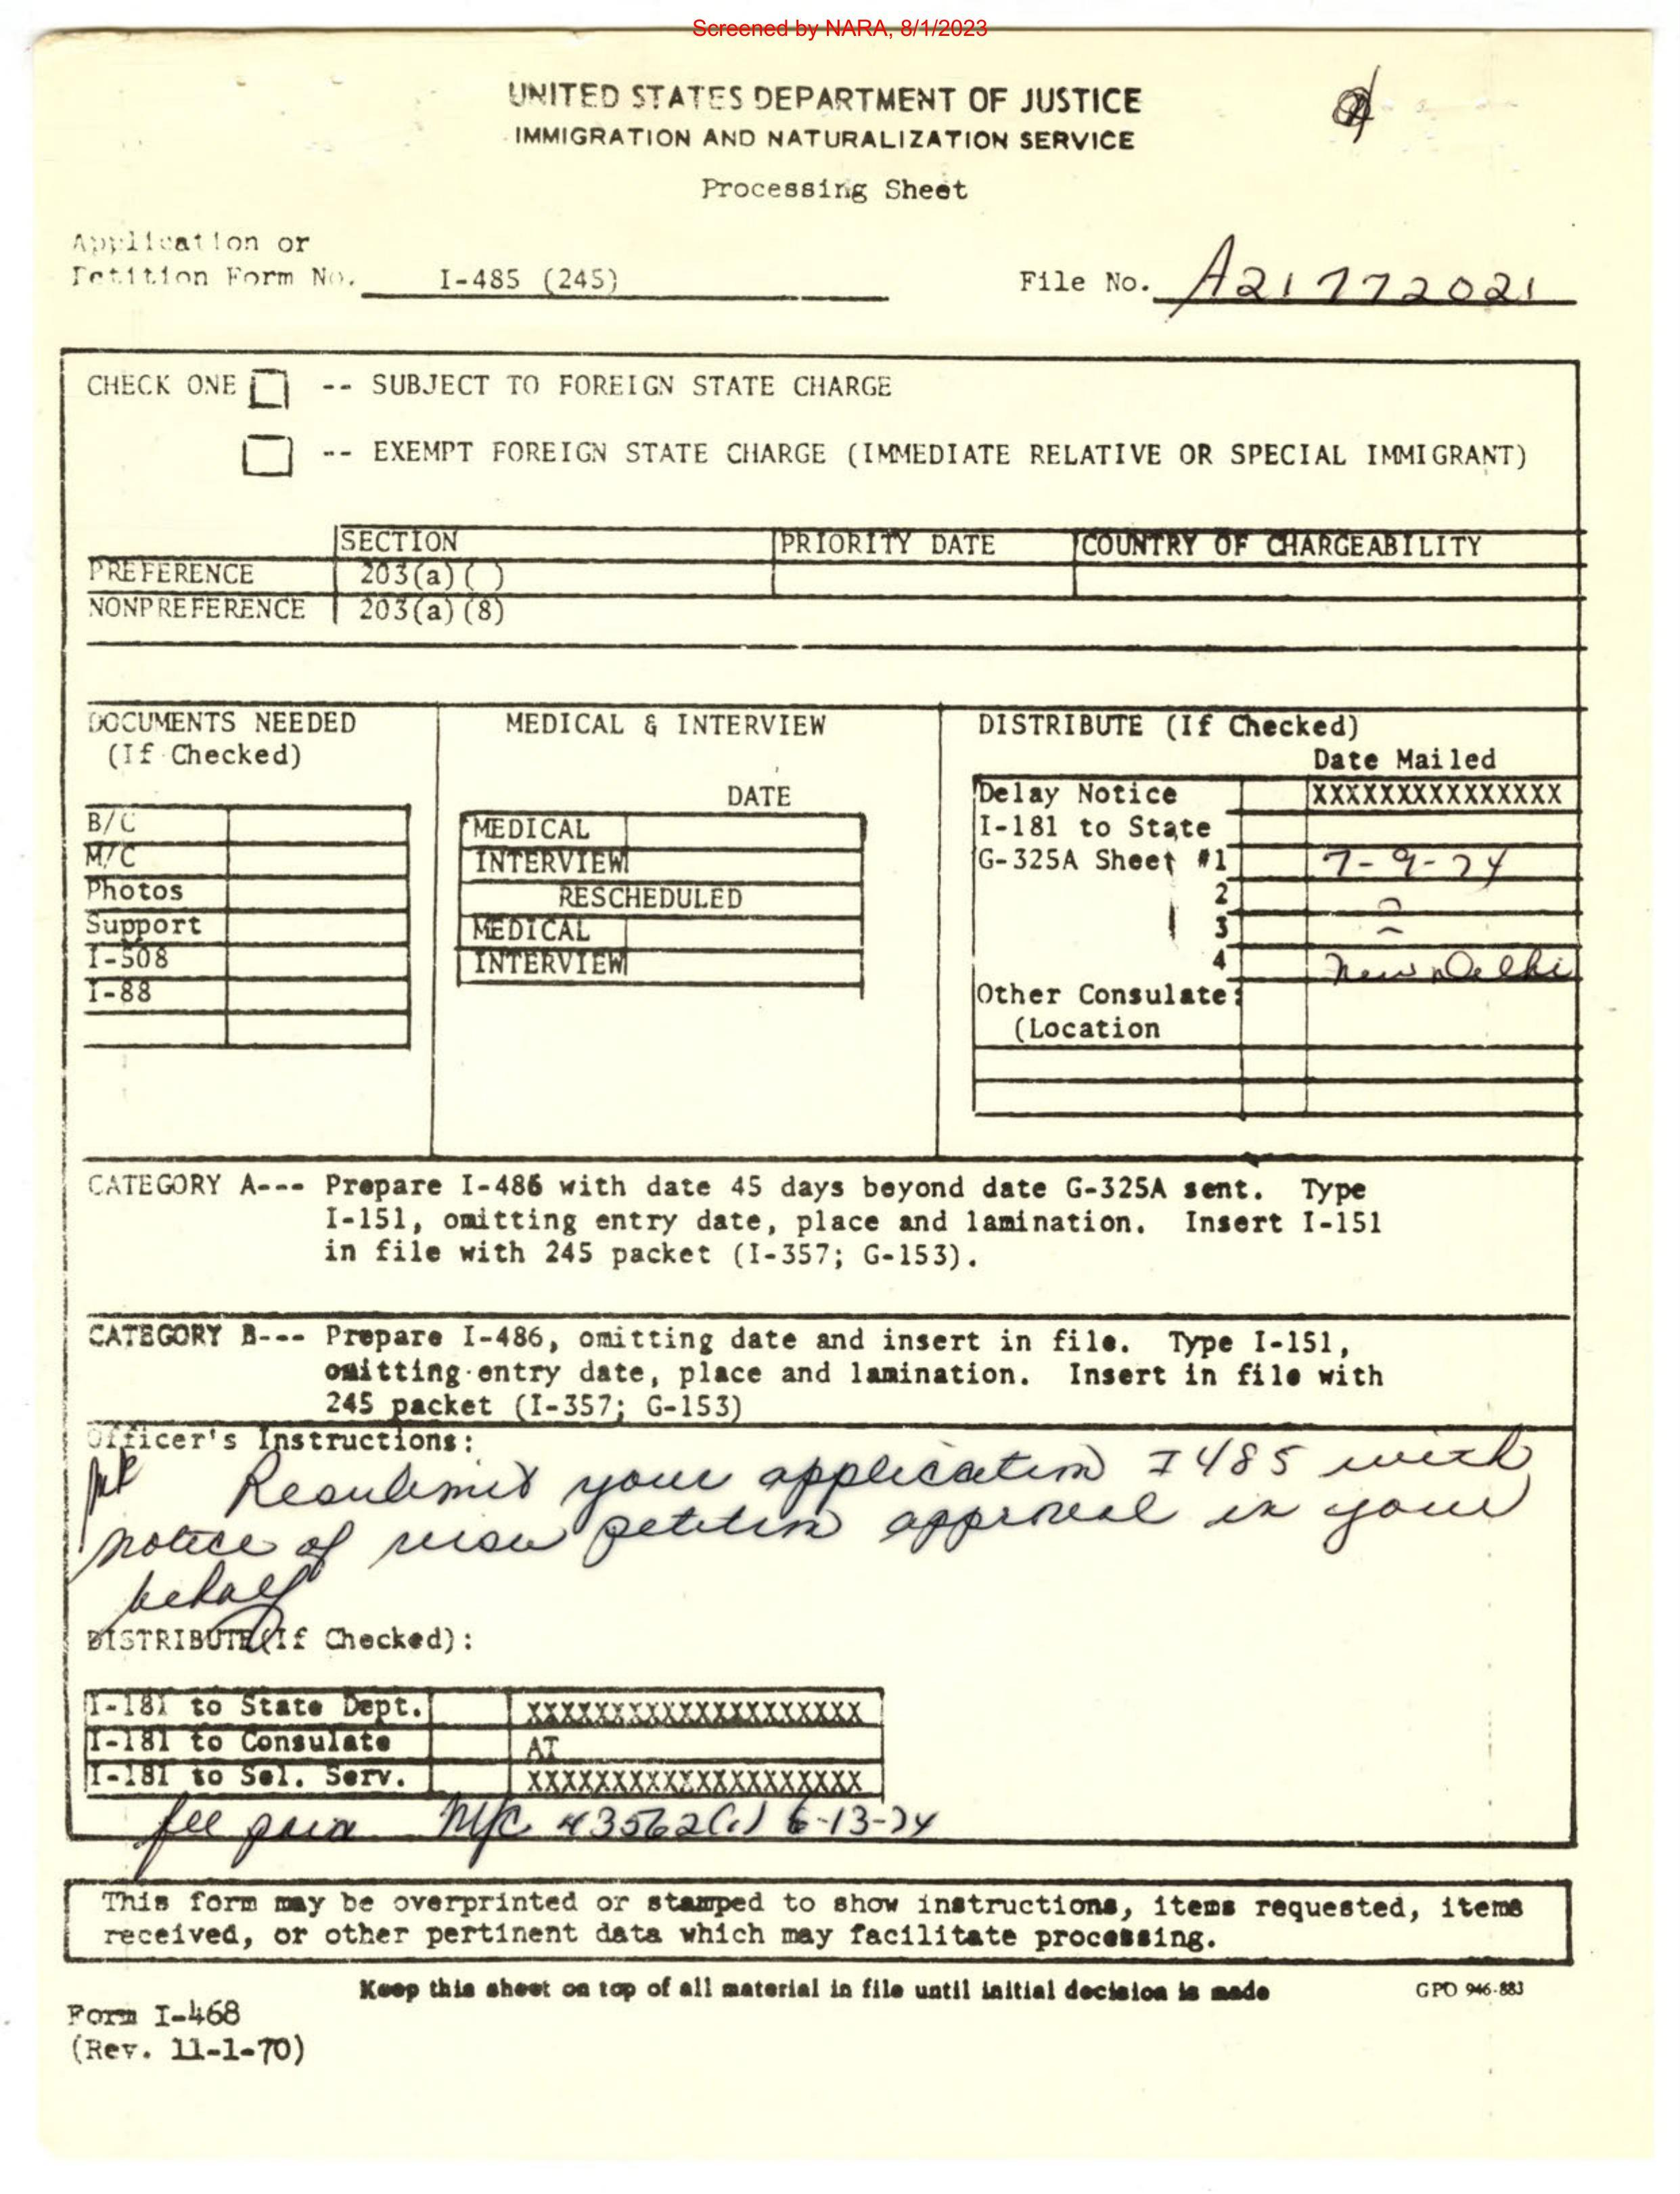 Screened by NARA, 8/1/2023
UNITED STATES DEPARTMENT OF JUSTICE
IMMIGRATION AND NATURALIZATION SERVICE
Processing Sheet
Application or
Petition Form No. I-485 (245)
File No. A21 772021
CHECK ONE -- SUBJECT TO FOREIGN STATE CHARGE
-- EXEMPT FOREIGN STATE CHARGE (IMMEDIATE RELATIVE OR SPECIAL IMMIGRANT)
SECTION PRIORITY DATE COUNTRY OF CHARGEABILITY
PREFERENCE 203(a)( )
NONPREFERENCE 203(a)(8)
DOCUMENTS NEEDED
(If Checked)
B/C
M/C
Photos
Support
I-508
I-88
MEDICAL & INTERVIEW
DATE
MEDICAL
INTERVIEW
RESCHEDULED
MEDICAL
INTERVIEW
DISTRIBUTE (If Checked)
Date Mailed
Delay Notice XXXXXXXXXXXXXXX
I-181 to State
G-325A Sheet #1 7-9-74
2
3
4 New Delhi
Other Consulate:
(Location
CATEGORY A--- Prepare I-486 with date 45 days beyond date G-325A sent. Type
I-151, omitting entry date, place and lamination. Insert I-151
in file with 245 packet (I-357; G-153).
CATEGORY B--- Prepare I-486, omitting date and insert in file. Type I-151,
omitting entry date, place and lamination. Insert in file with
245 packet (I-357; G-153)
Officer's Instructions:
Resubmit your application I 485 with
notice of visa petition approval in your
behalf
DISTRIBUTE(If Checked):
I-181 to State Dept. XXXXXXXXXXXXXXXXXXXX
I-181 to Consulate AT
I-181 to Sel. Serv. XXXXXXXXXXXXXXXXXXXX
fee paid 6-13-74
This form may be overprinted or stamped to show instructions, items requested, items
received, or other pertinent data which may facilitate processing.
Keep this sheet on top of all material in file until initial decision is made
GPO 946-883
Form I-468
(Rev. 11-1-70)